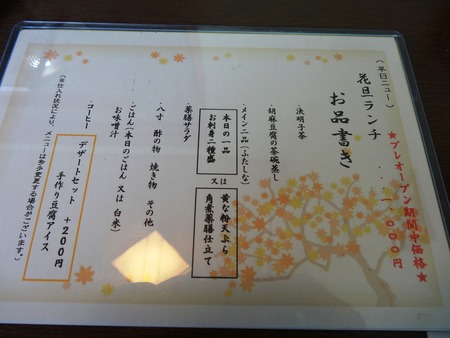 (平日メニュー)
花旦ランチ
お品書き
★プレオープン期間中価格★
一、000円
・決明子茶
・胡麻豆腐の茶碗蒸し
・メイン二品(ふたしな)
本日の一品
お刺身二種盛
又は
黄な粉天ぷら
角煮薬膳仕立て
・薬膳サラダ
・八寸 酢の物 焼き物 その他
・ごはん(本日のごはん 又は 白米)
お味噌汁
・コーヒー
デザートセット +200円
手作り豆腐アイス
(※仕入れ状況により、メニューは多少変更する場合がございます。)